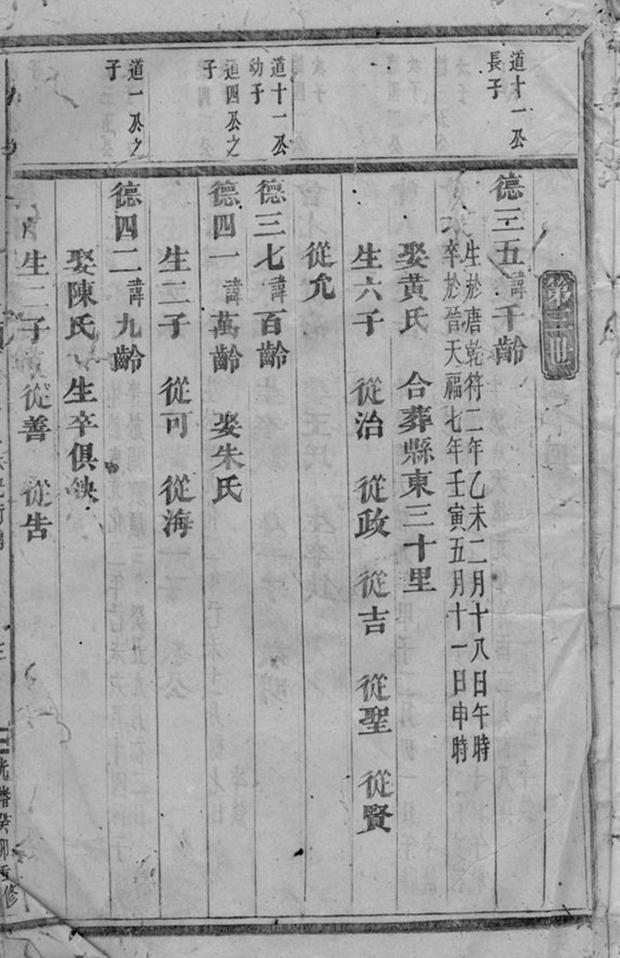 第三世
道十一公
長子
德三五諱千齡
生於唐乾符二年乙未二月十八日午時
卒於晉天福七年壬寅五月十一日申時
娶黃氏 合葬縣東三十里
生六子 從治 從政 從吉 從聖 從賢
從允
道十一公
幼子
德三七諱百齡
道四公之
子
德四一諱萬齡 娶朱氏
生二子 從可 從海
道一公之
子
德四二諱九齡
娶陳氏 生卒俱缺
生二子 從善 從告
光緒癸卯重修